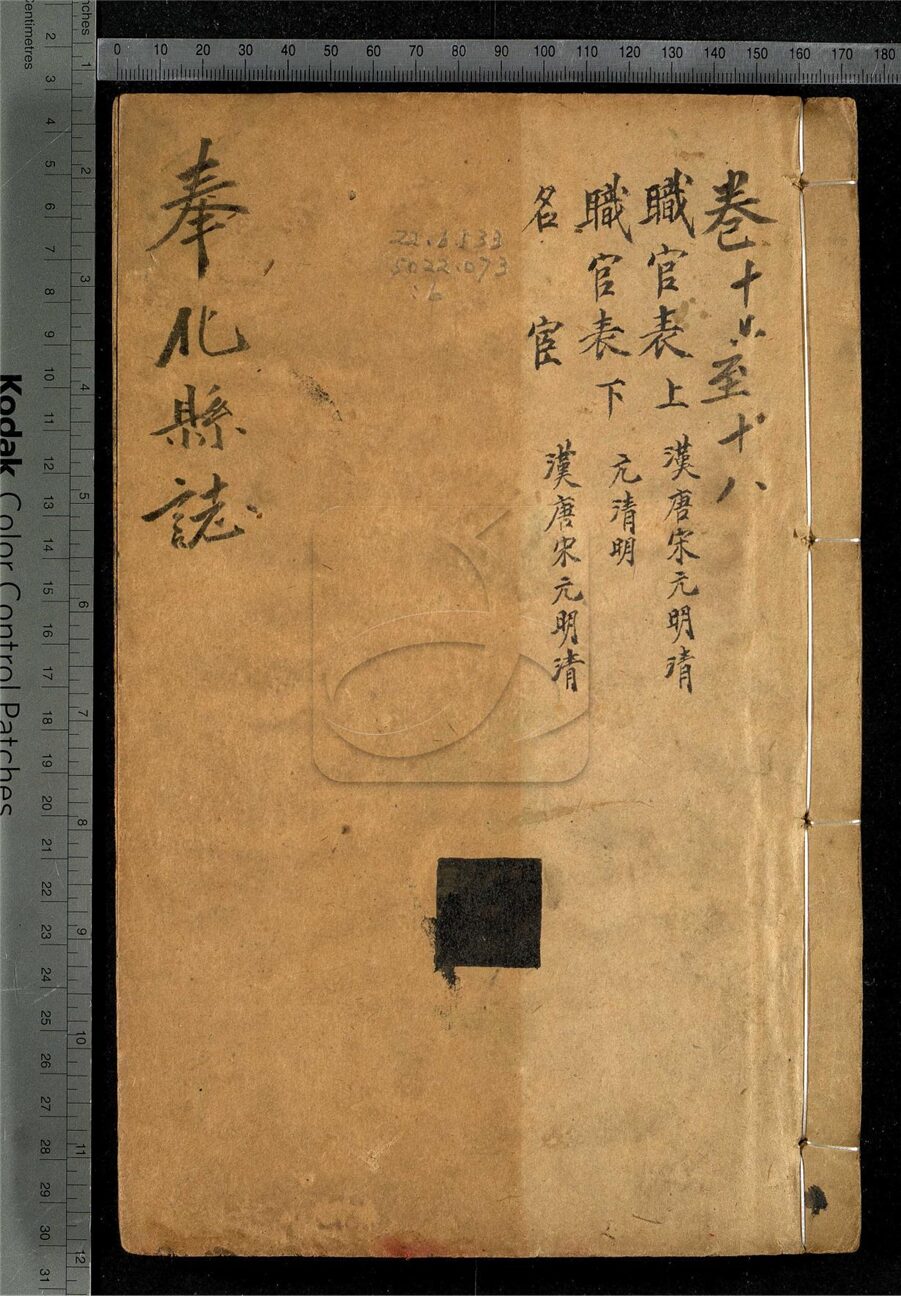 卷十六至十八
職官表上 漢唐宋元明清
職官表下 元清明
名宦 漢唐宋元明清
奉化縣誌
5022.073
:6
0 10 20 30 40 50 60 70 80 90 100 110 120 130 140 150 160 170 180
Centimetres 2 3 4 5 6 7 8 9 10 11 12 13 14 15 16 17 18 19 20 21 22 23 24 25 26 27 28 29 30 31
1 2 3 4 5 6 7 8 9 10 11 12
Kodak Color Control Patches